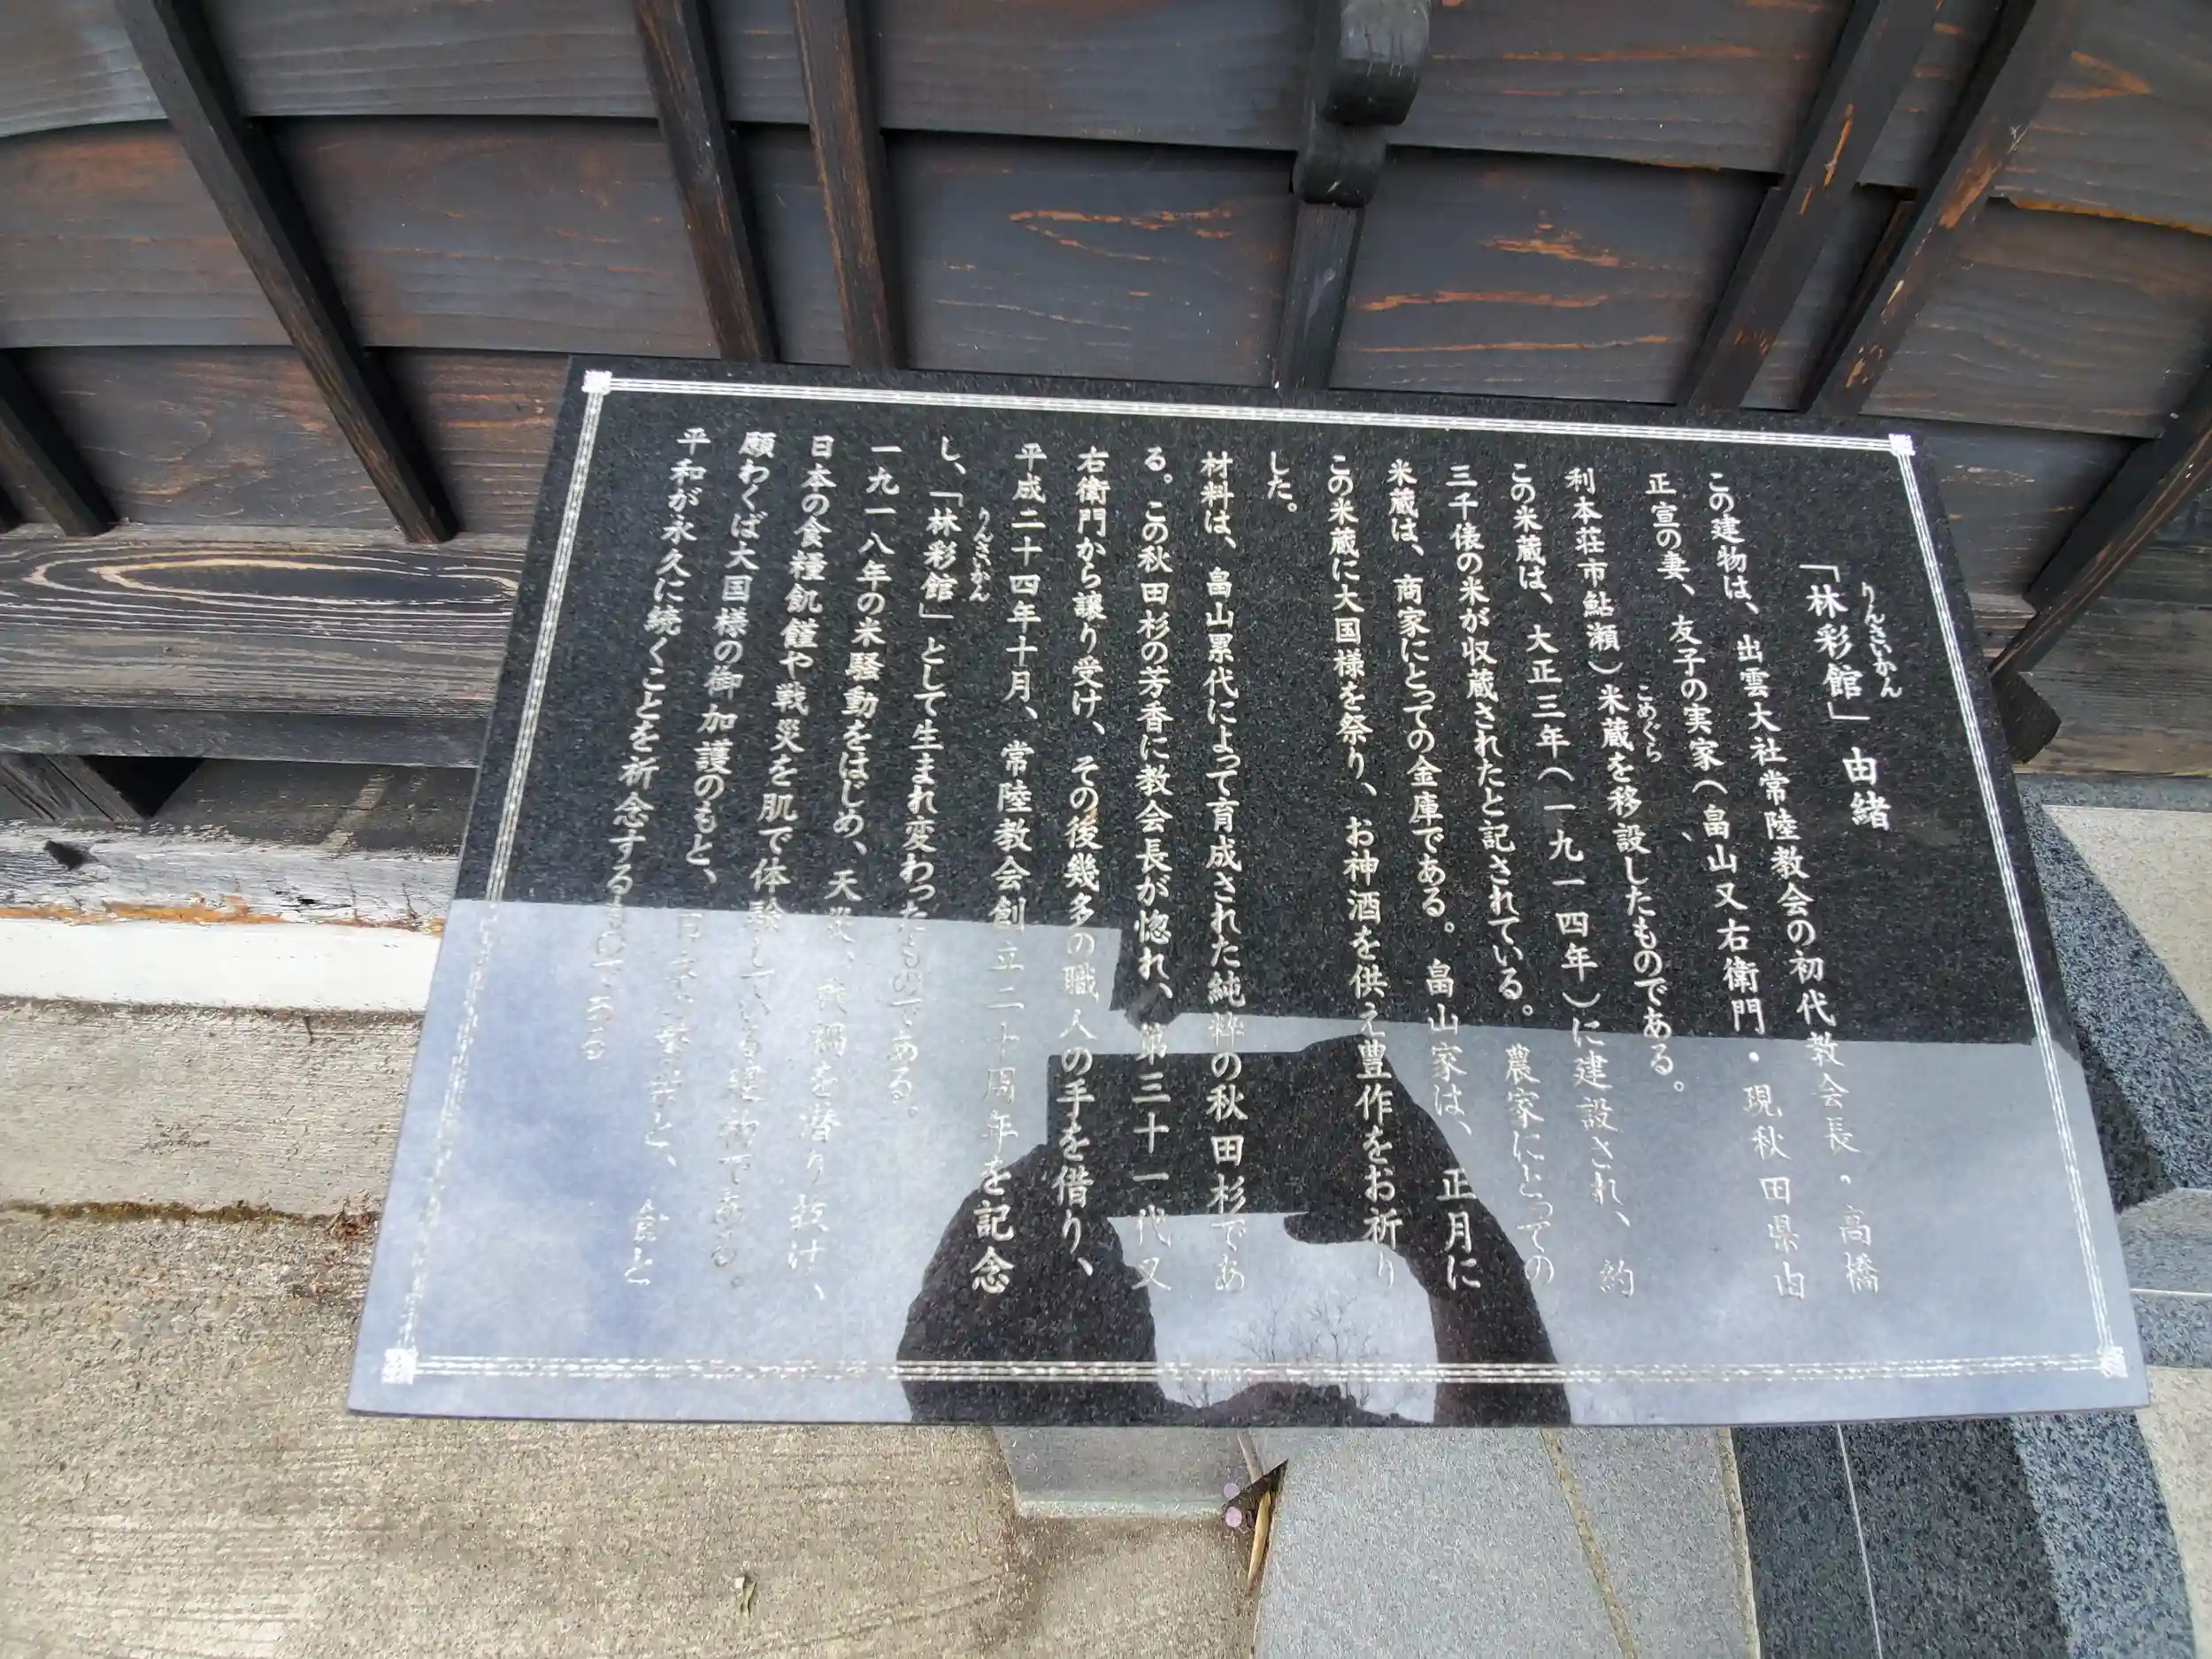 「林彩館」由緒
りんさいかん
この建物は、出雲大社常陸教会の初代教会長・高橋
正宣の妻、友子の実家（畠山又右衛門・現秋田県由
利本荘市鮎瀬）米蔵を移設したものである。
こめぐら
この米蔵は、大正三年（一九一四年）に建設され、約
三千俵の米が収蔵されたと記されている。農家にとっての
米蔵は、商家にとっての金庫である。畠山家は、正月に
この米蔵に大国様を祭り、お神酒を供え豊作をお祈り
した。
材料は、畠山累代によって育成された純粋の秋田杉であ
る。この秋田杉の芳香に教会長が惚れ、第三十一代又
右衛門から譲り受け、その後幾多の職人の手を借り、
平成二十四年十月、常陸教会創立二十周年を記念
し、「林彩館」として生まれ変わったものである。
りんさいかん
一九一八年の米騒動をはじめ、天災、戦禍を潜り抜け、
日本の食糧飢饉や戦災を肌で体験している建物である。
願わくば大国様の御加護のもと、日本の繁栄と、食と
平和が永久に続くことを祈念するものである